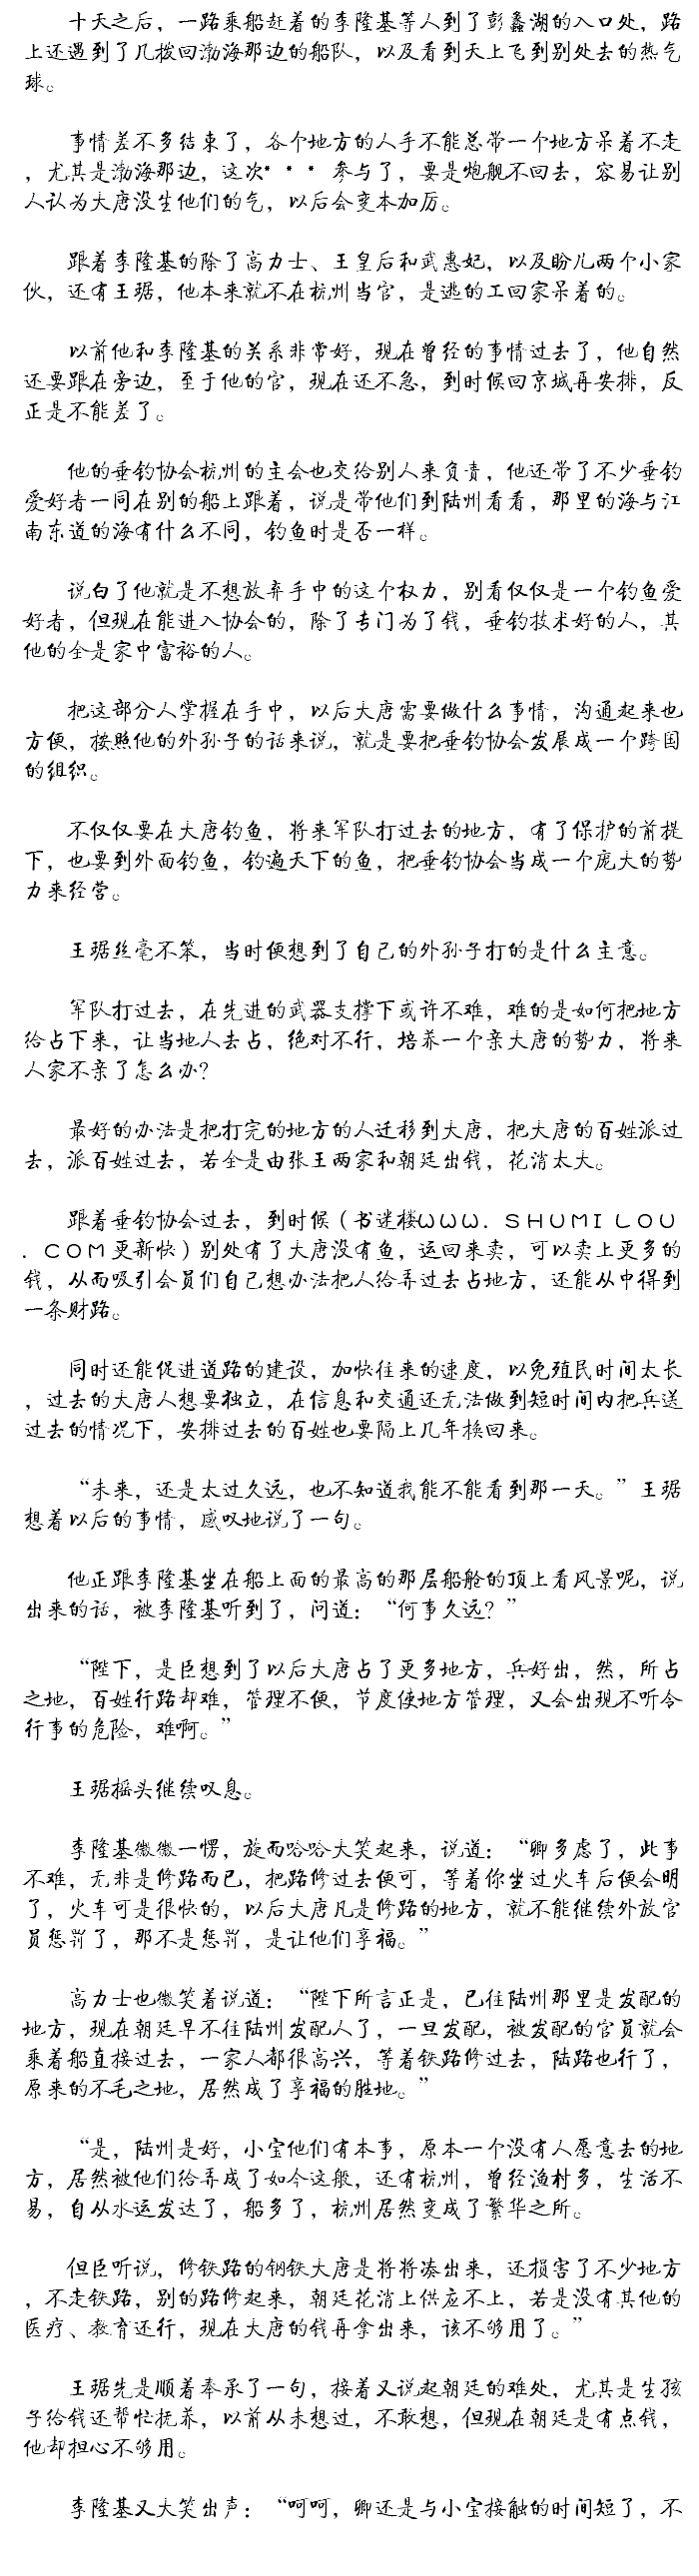 十天之后，一路乘船赶着的李隆基等人到了彭蠡湖的入口处，路
上还遇到了几拨回渤海那边的船队，以及看到天上飞到别处去的热气
球。
事情差不多结束了，各个地方的人手不能总带一个地方呆着不走
，尤其是渤海那边，这次•••参与了，要是炮舰不回去，容易让别
人认为大唐没生他们的气，以后会变本加厉。
跟着李隆基的除了高力士、王皇后和武惠妃，以及盼儿两个小家
伙，还有王琚，他本来就不在杭州当官，是逃的工回家呆着的。
以前他和李隆基的关系非常好，现在曾经的事情过去了，他自然
还要跟在旁边，至于他的官，现在还不急，到时候回京城再安排，反
正是不能差了。
他的垂钓协会杭州的主会也交给别人来负责，他还带了不少垂钓
爱好者一同在别的船上跟着，说是带他们到陆州看看，那里的海与江
南东道的海有什么不同，钓鱼时是否一样。
说白了他就是不想放弃手中的这个权力，别看仅仅是一个钓鱼爱
好者，但现在能进入协会的，除了专门为了钱，垂钓技术好的人，其
他的全是家中富裕的人。
把这部分人掌握在手中，以后大唐需要做什么事情，沟通起来也
方便，按照他的外孙子的话来说，就是要把垂钓协会发展成一个跨国
的组织。
不仅仅要在大唐钓鱼，将来军队打过去的地方，有了保护的前提
下，也要到外面钓鱼，钓遍天下的鱼，把垂钓协会当成一个庞大的势
力来经营。
王琚丝毫不笨，当时便想到了自己的外孙子打的是什么主意。
军队打过去，在先进的武器支撑下或许不难，难的是如何把地方
给占下来，让当地人去占，绝对不行，培养一个亲大唐的势力，将来
人家不亲了怎么办？
最好的办法是把打完的地方的人迁移到大唐，把大唐的百姓派过
去，派百姓过去，若全是由张王两家和朝廷出钱，花消太大。
跟着垂钓协会过去，到时候（书迷楼ωωω．ＳＨＵＭＩＬＯＵ
．ＣＯＭ更新快）别处有了大唐没有鱼，运回来卖，可以卖上更多的
钱，从而吸引会员们自己想办法把人给弄过去占地方，还能从中得到
一条财路。
同时还能促进道路的建设，加快往来的速度，以免殖民时间太长
，过去的大唐人想要独立，在信息和交通还无法做到短时间内把兵送
过去的情况下，安排过去的百姓也要隔上几年换回来。
“未来，还是太过久远，也不知道我能不能看到那一天。”王琚
想着以后的事情，感叹地说了一句。
他正跟李隆基坐在船上面的最高的那层船舱的顶上看风景呢，说
出来的话，被李隆基听到了，问道：“何事久远？”
“陛下，是臣想到了以后大唐占了更多地方，兵好出，然，所占
之地，百姓行路却难，管理不便，节度使地方管理，又会出现不听令
行事的危险，难啊。”
王琚摇头继续叹息。
李隆基微微一愣，旋而哈哈大笑起来，说道：“卿多虑了，此事
不难，无非是修路而已，把路修过去便可，等着你坐过火车后便会明
了，火车可是很快的，以后大唐凡是修路的地方，就不能继续外放官
员惩罚了，那不是惩罚，是让他们享福。”
高力士也微笑着说道：“陛下所言正是，已往陆州那里是发配的
地方，现在朝廷早不往陆州发配人了，一旦发配，被发配的官员就会
乘着船直接过去，一家人都很高兴，等着铁路修过去，陆路也行了，
原来的不毛之地，居然成了享福的胜地。”
“是，陆州是好，小宝他们有本事，原本一个没有人愿意去的地
方，居然被他们给弄成了如今这般，还有杭州，曾经渔村多，生活不
易，自从水运发达了，船多了，杭州居然变成了繁华之所。
但臣听说，修铁路的钢铁大唐是将将凑出来，还损害了不少地方
，不走铁路，别的路修起来，朝廷花消上供应不上，若是没有其他的
医疗、教育还行，现在大唐的钱再拿出来，该不够用了。”
王琚先是顺着奉承了一句，接着又说起朝廷的难处，尤其是生孩
子给钱还帮忙抚养，以前从未想过，不敢想，但现在朝廷是有点钱，
他却担心不够用。
李隆基又大笑出声：“呵呵，卿还是与小宝接触的时间短了，不